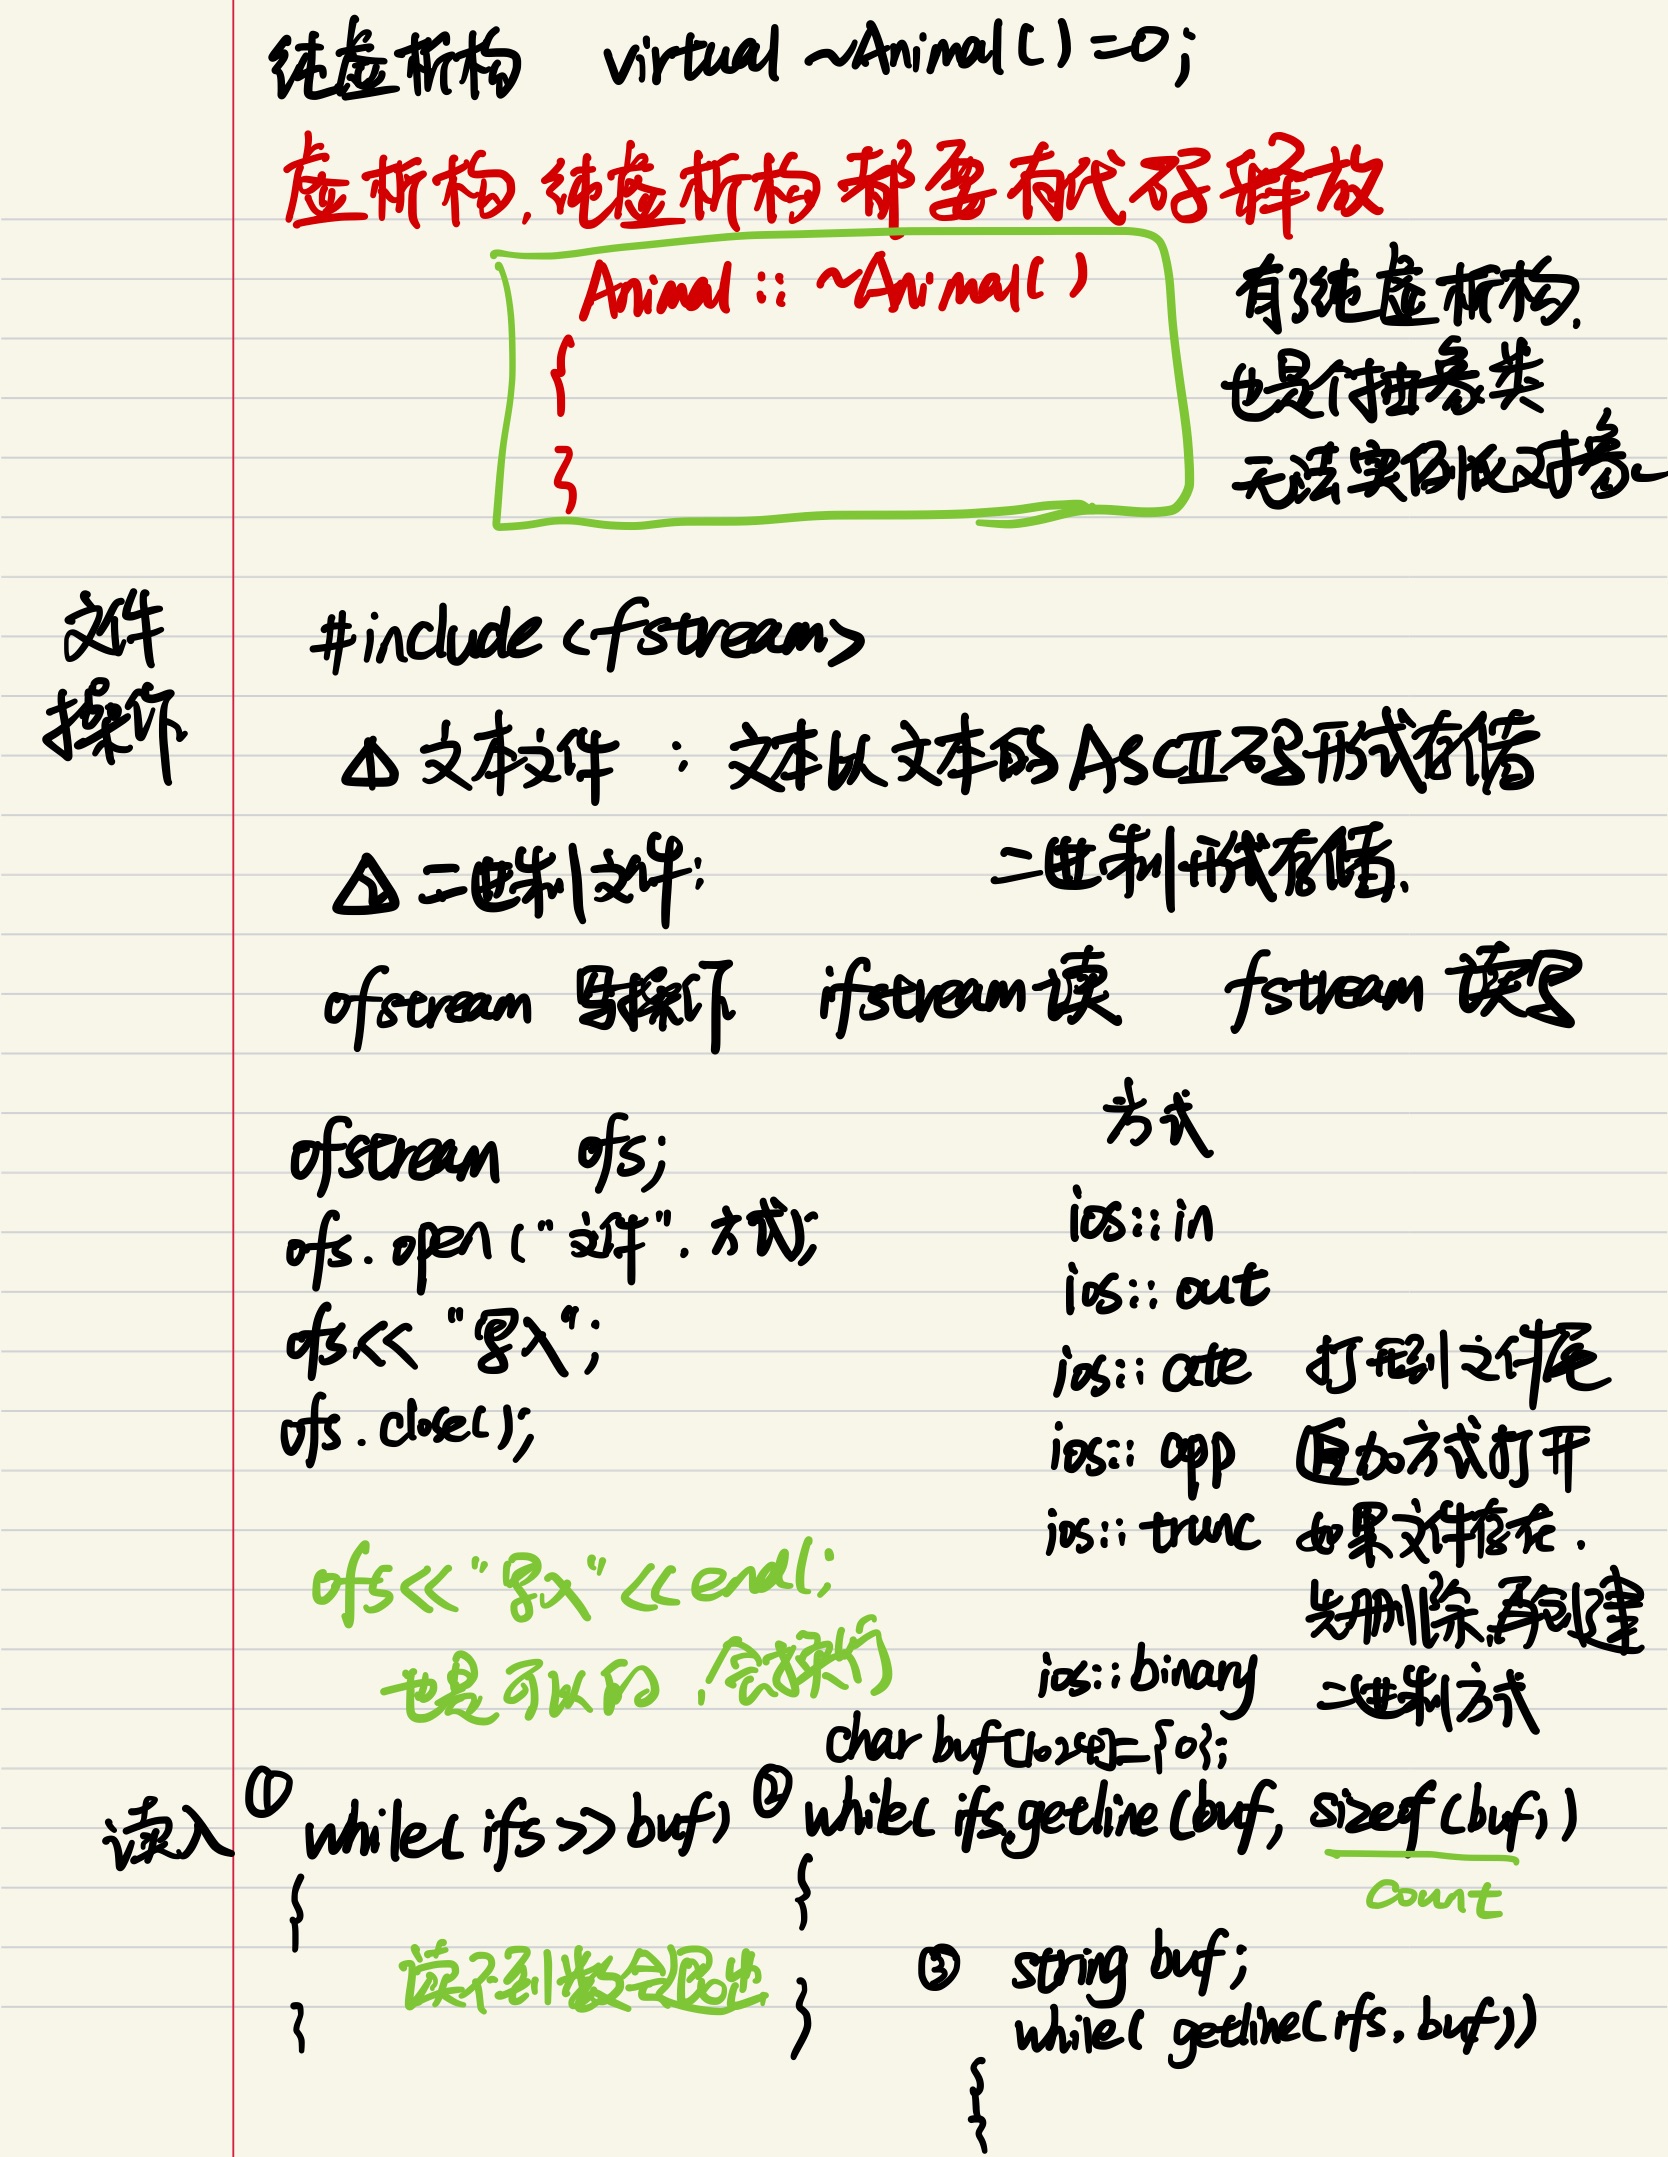 纯虚析构 virtual ~Animal()=0;
虚析构,纯虚析构 都要有代码释放
Animal::~Animal()
{
}
有了纯虚析构,
也是个抽象类
无法实例化对象~
文件
操作
#include <fstream>
△1 文本文件 : 文本以文本的ASCII码形式存储
△2 二进制文件: 二进制形式存储.
ofstream 写操作 ifstream 读 fstream 读写
方式
ofstream ofs;
ofs.open("文件",方式);
ofs<< "写入";
ofs.close();
ios::in
ios::out
ios::ate 打开到文件尾
ios::app 追加方式打开
ios::trunc 如果文件存在.
先删除,再创建
ios::binary 二进制方式
ofs<<"写入"<<endl;
也是可以的,会换行
读入
① while(ifs>>buf)
{
读不到数会退出
}
char buf[1024]={0};
② while(ifs.getline(buf, sizeof(buf))
count
{
}
③ string buf;
while( getline(ifs,buf))
{